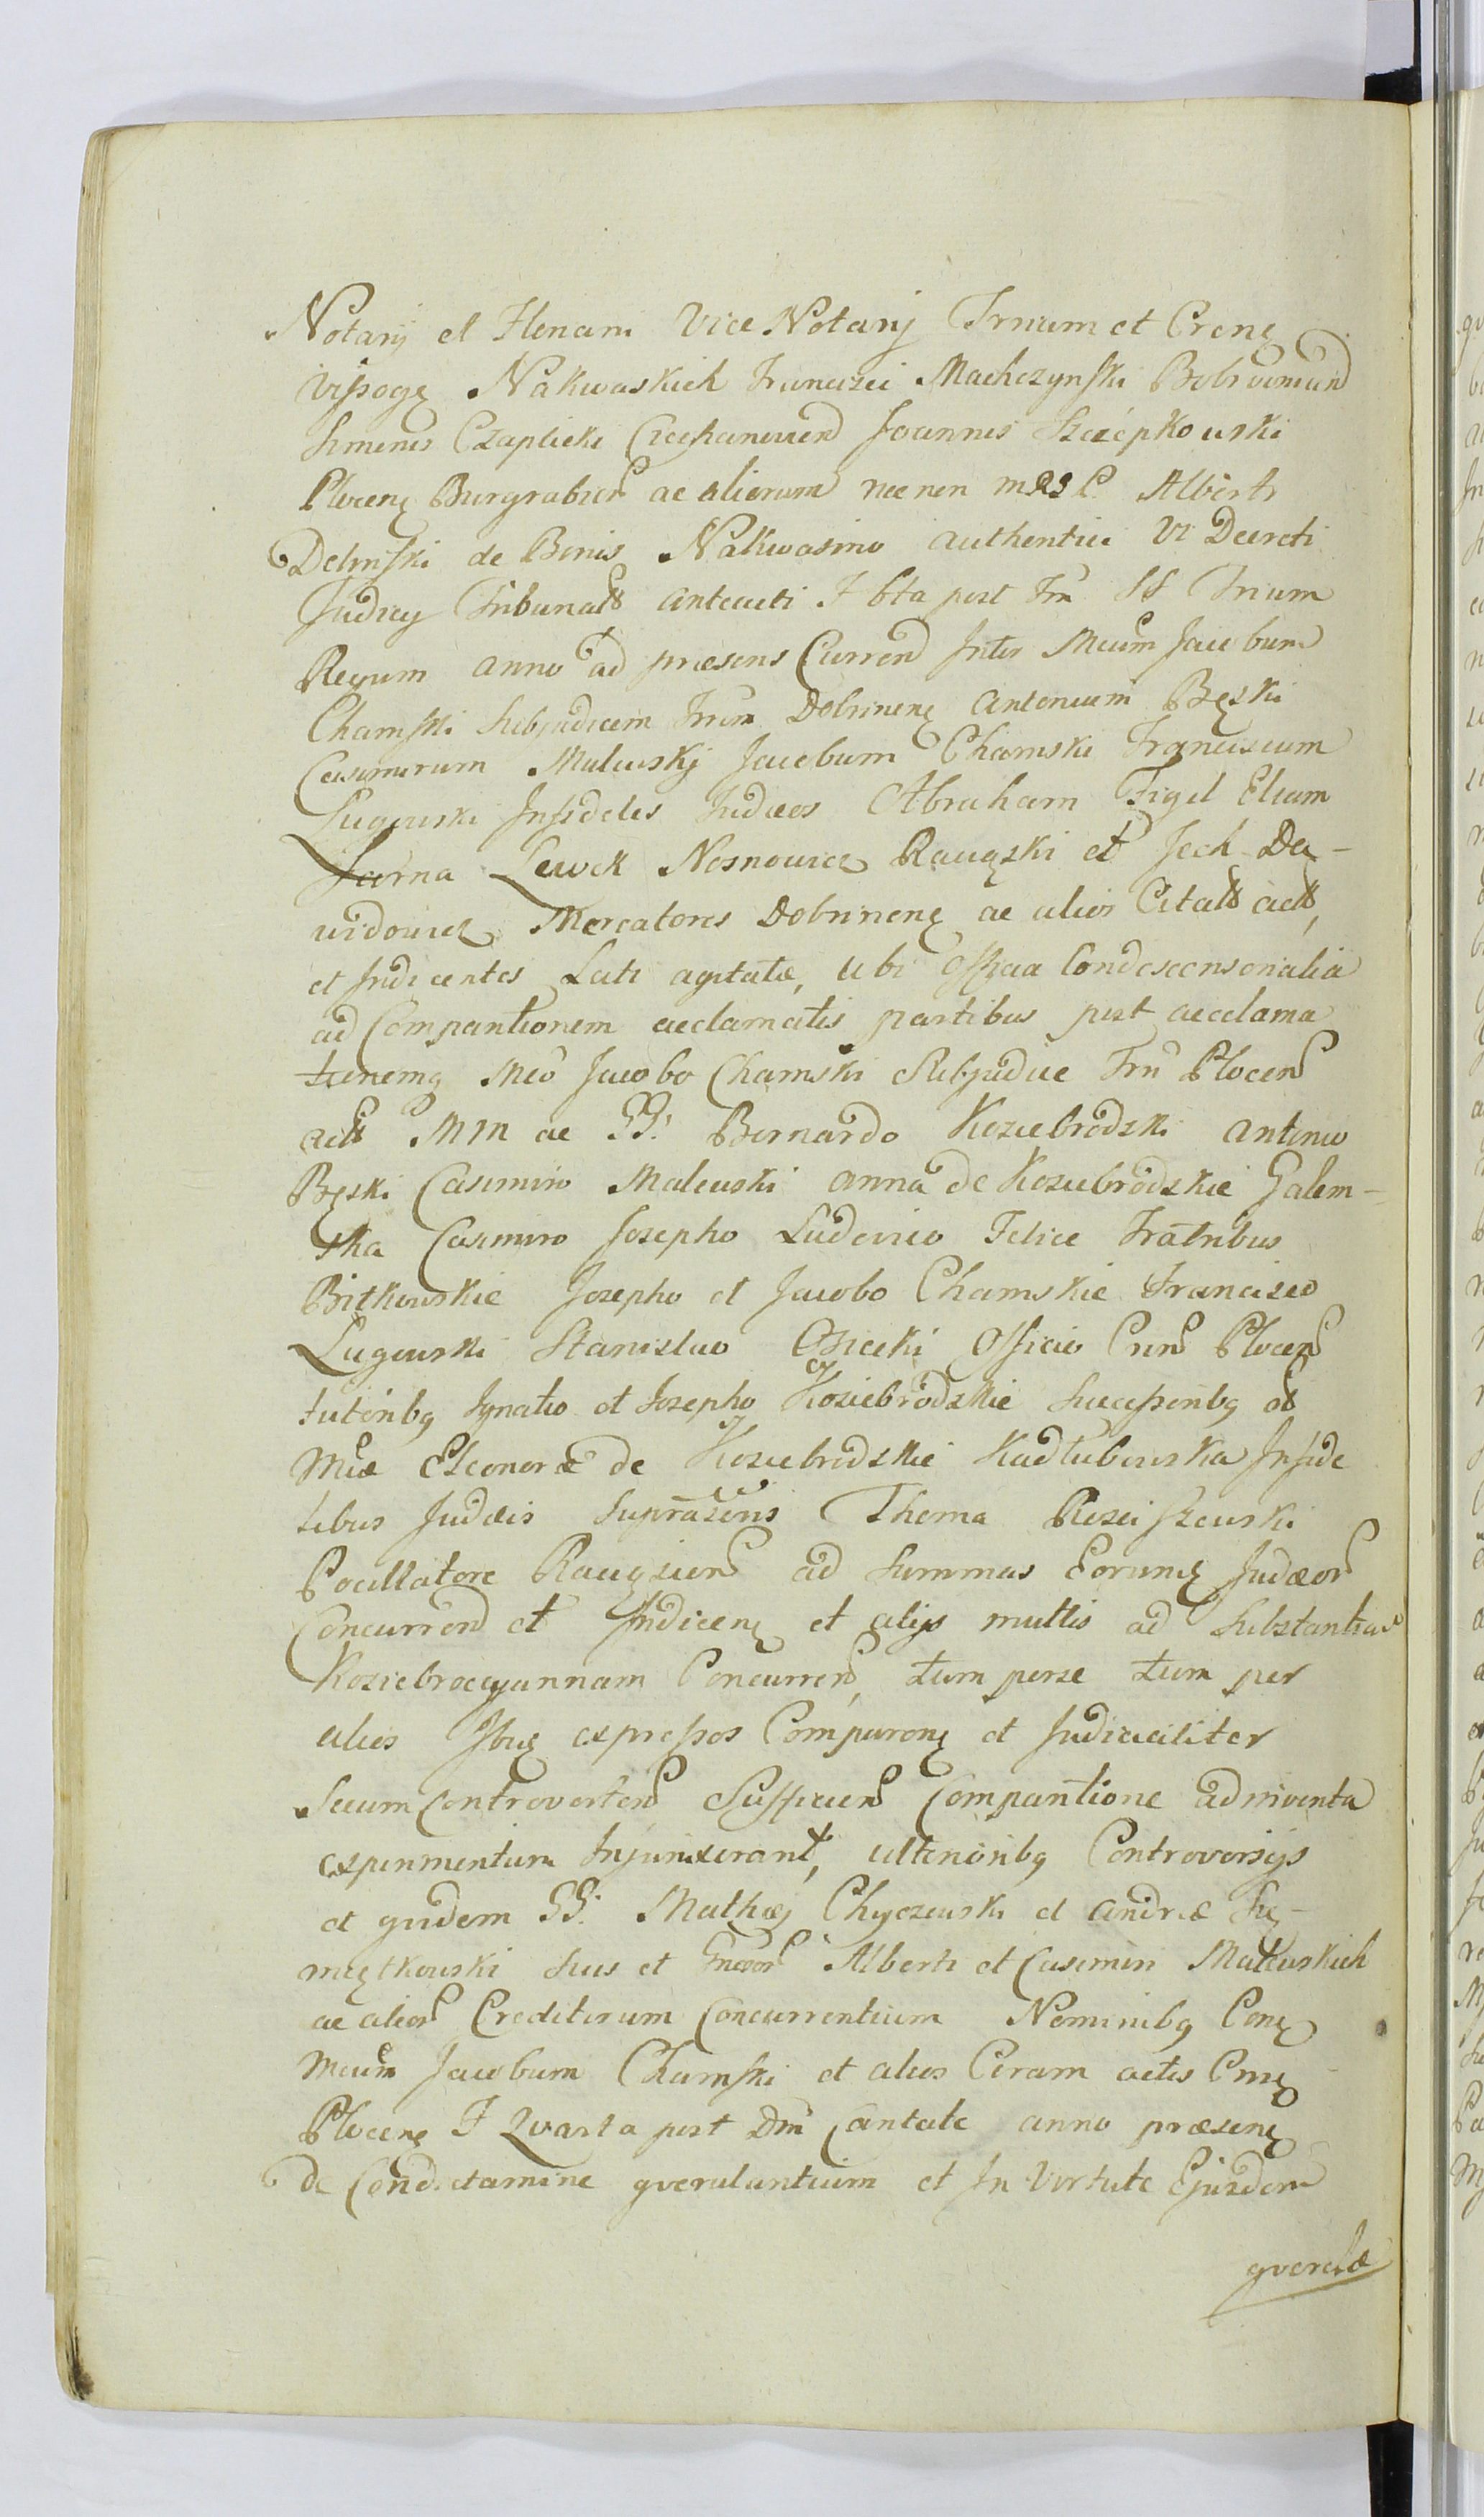 Notarij et Henani Vice Notarij Trnum et Crenę
Vissogę Nakwaskich Francisci Machczynski Bobrovimund
Simenis Czaplicki Ciechanovien Joannis Szczepkowski
Plocenę Burgrabien ac aliorum nec non Alberti
Delinski de Bonis Nakwasino authentici Vi Decreti
Judicij Tribunal anteacti F 6ta post Fm SS Trium
Regum anno ad præsens Curren Inter Mcum Jacobum
Chamski Subjudicem Trrum Dobrinenę Antonium Bęski
Casimirum Malewskj Jacobum Chamski Franciscum
Lugowski Infideles Judæos Abraham Figel Eliam
Sarna Lewek Nosnowicz Raciązki et Jech Da-
widowicz Mercatores Dobrinenę ac alios Citatt actt,
et Indicentes Lati agitatæ, ubi Officia Condescensonalia
ad Comparitionem acclamatis partibus post acclama
tionemq Mco Jacobo Chamski Subjudice Trri Plocen
actt MM ac GG. Bernardo Koziebrodzki Antonio
Bęski Casimiro Malewski Anna de Koziebrodzkie Galem-
ska Casimiro Josepho Ludovico Felice Fratribus
Bitkowskie Josepho et Jacobo Chamskie Francisco
Lugowski Stanislao Osiecki Officio Crri Plocen
tutoribq Ignatio et Josepho Koziebrodzkie Successoribq olt
Mcæ Eleonoræ de Koziebrodzkie Kadlubowska Infide
libus Judæis Suprazenis Thoma Rosciszewski
Pocillatore Raciązien ad Summas Eorumę Judæor
Concurren et Indicenę et alijs multis ad Substantiam
Koziebrocyannam Concurren, tum perse tum per
alios Ibuę expressos Comparenę et Judicialiter
Secum Controverten Sufficien Comparitione adinventa
experimentum Injunxerant, ulterioribq Controversijs
et quidem GG. Mathæj Chyczewski et Andreæ Sie-
miętkowski Suis et Gnosor Alberti et Casimiri Malewskich
ac alior Creditorum Concurrentium Nominibq Conę
Mcum Jacobum Chamski et alios Coram actis Cnsę
Plocenę F Quarta post Dm Cantate anno præsenę
de Condictamine querulantium et In Virtute Ejusdem
querelæ